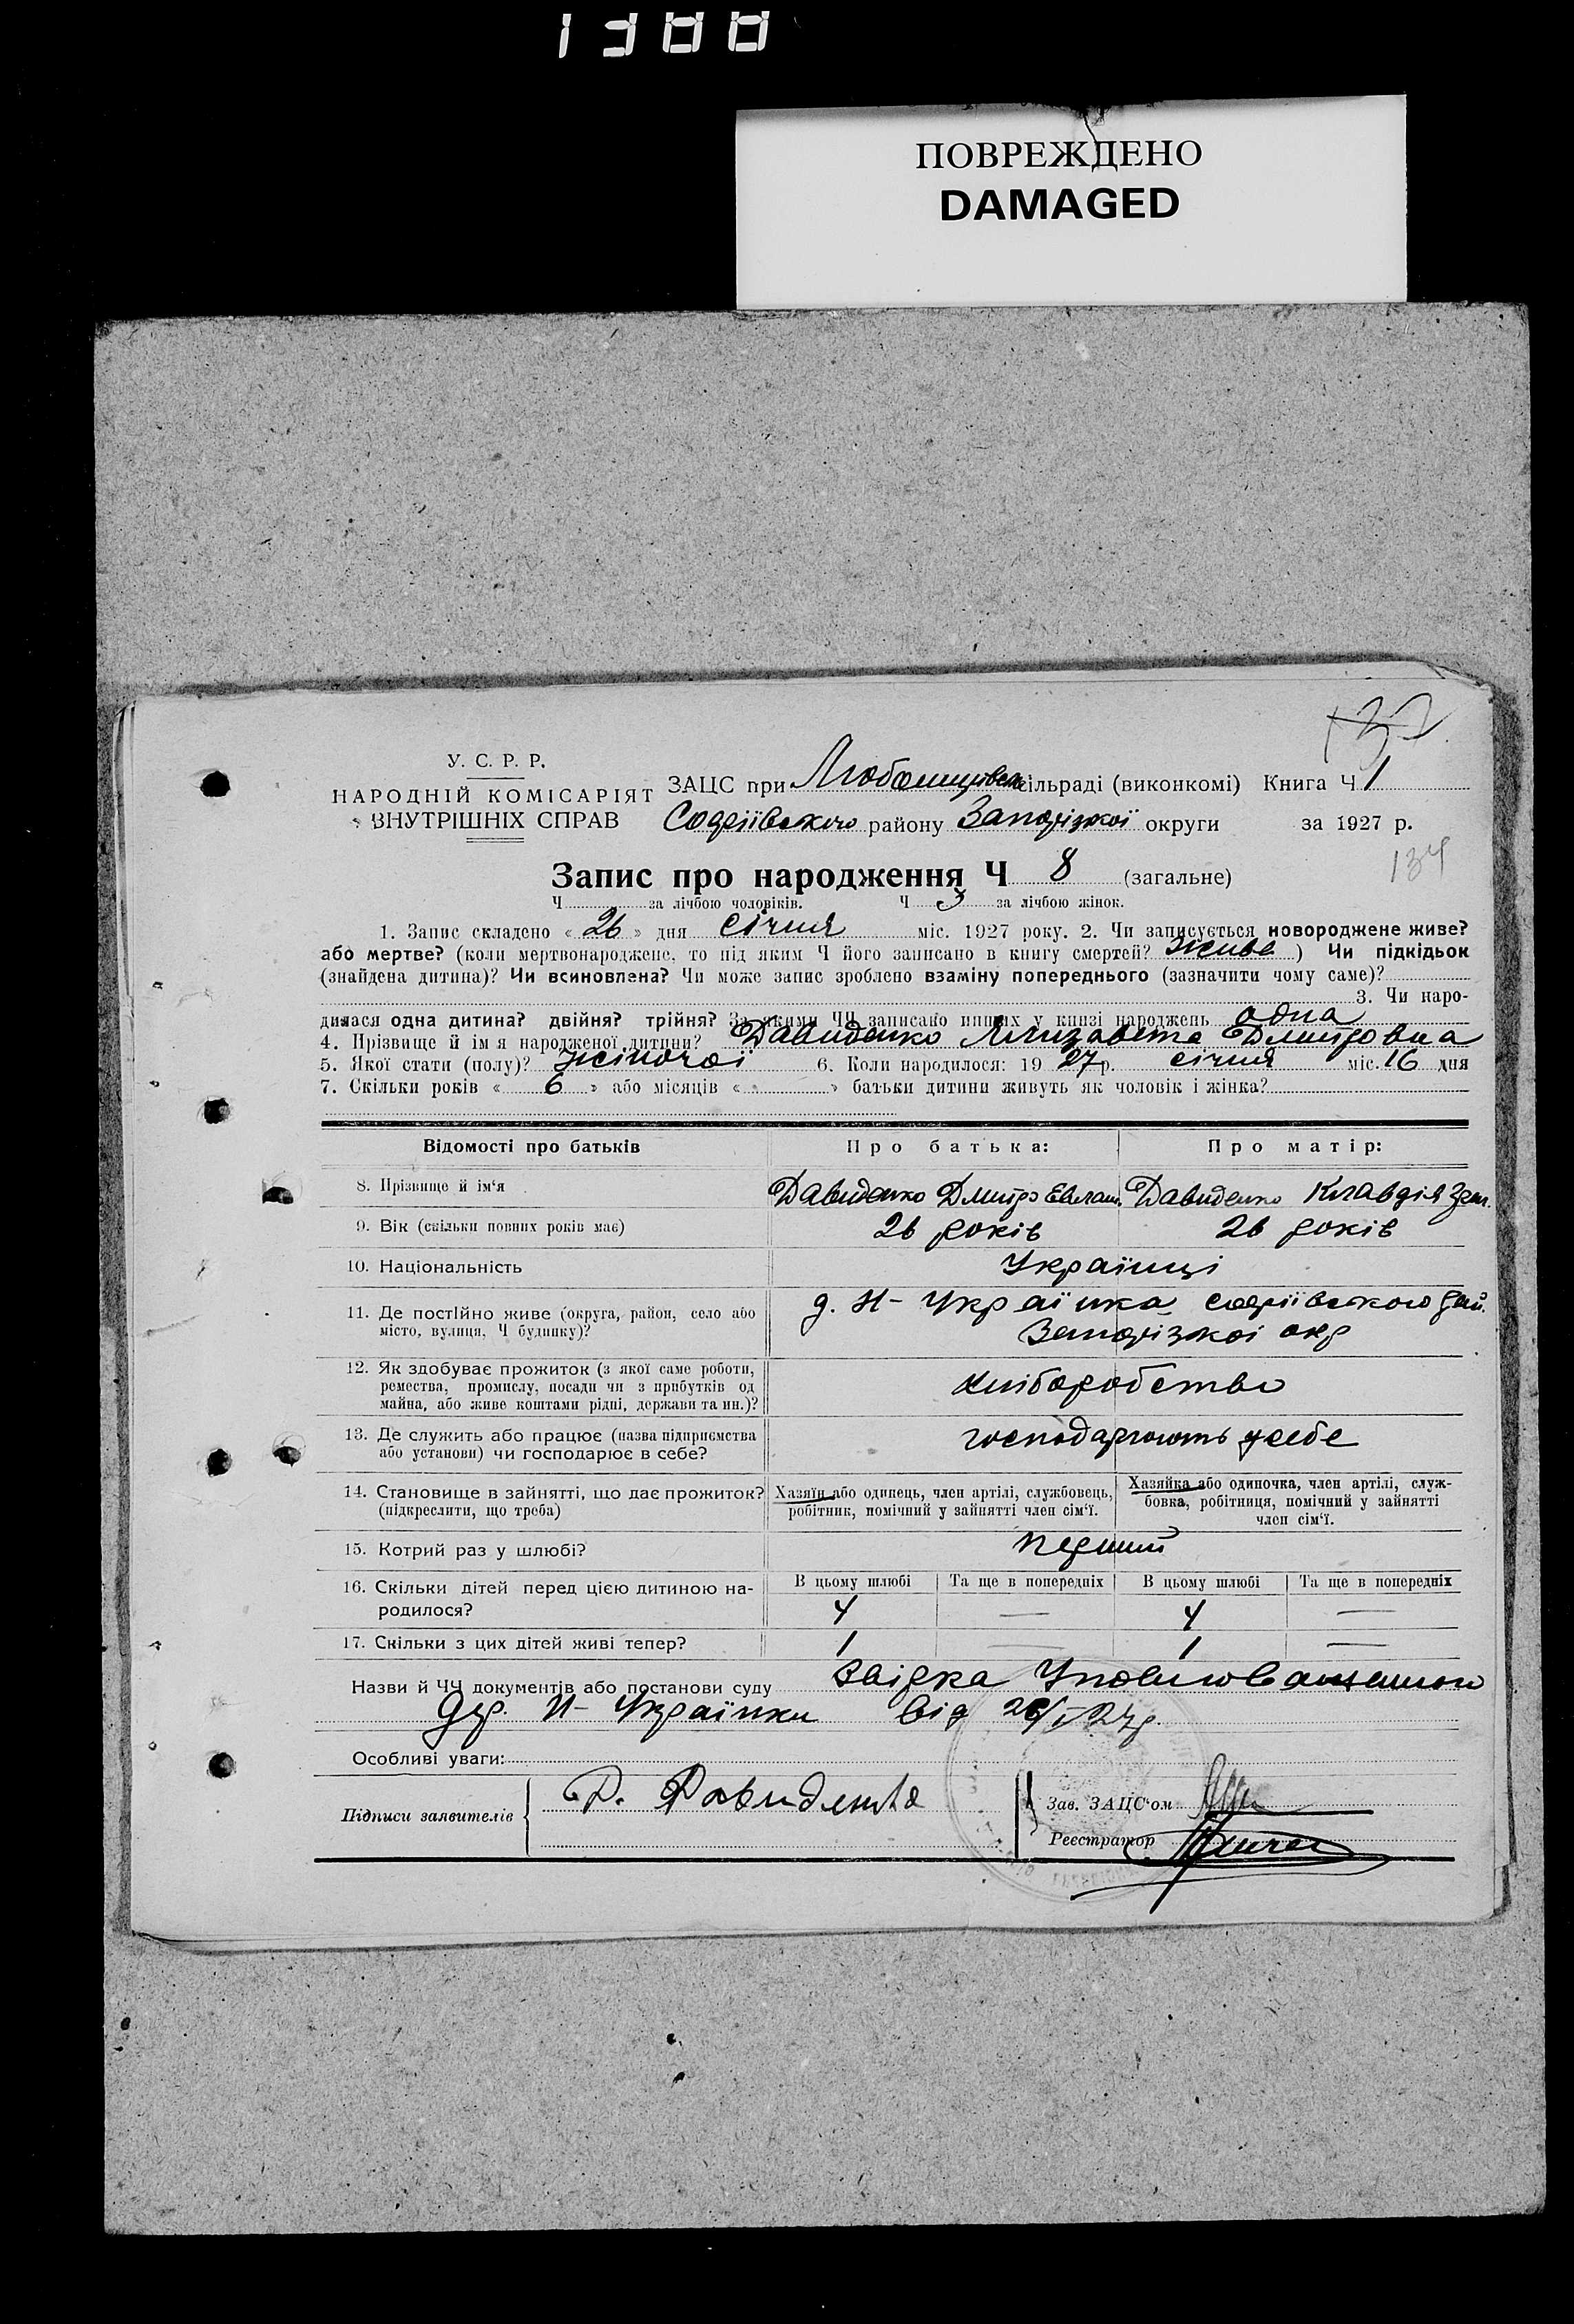 1388
ПОВРЕЖДЕНО
DAMAGED
137
У. С. Р. Р.
НАРОДНІЙ КОМІСАРІЯТ
ВНУТРІШНІХ СПРАВ
ЗАЦС при сільраді (виконкомі) Книга Ч 1
району Запорізкої округи за 1927 р.
134
Запис про народження Ч 8 (загальне)
Ч за лічбою чоловіків. Ч 3 за лічбою жінок.
1. Запис складено « 26 » дня січня міс. 1927 року. 2. Чи записується новороджене живе?
або мертве? (коли мертвонароджене, то під яким Ч його записано в книгу смертей? живе ) Чи підкідьок
(знайдена дитина)? Чи всиновлена? Чи може запис зроблено взаміну попереднього (зазначити чому саме)?
3. Чи наро-
дилася одна дитина? двійня? трійня? За якими ЧЧ записано инших у книзі народжень одна
4. Прізвище й ім'я народженої дитини? Давиденко Лізавета Дмитровна
5. Якої стати (полу)? жіночої 6. Коли народилося: 19 27 р. січня міс. 16 дня
7. Скільки років « 6 » або місяців « » батьки дитини живуть як чоловік і жінка?
Відомості про батьків Про батька: Про матір:
8. Прізвище й ім'я Давиденко Дмитро Евлам. Давиденко Клавдія
9. Вік (скільки повних років має) 26 років 26 років
10. Національність Українці
11. Де постійно живе (округа, район, село або
місто, вулиця, Ч будинку)?
д. Н-Українка рай.
Запорізкої окр
12. Як здобуває прожиток (з якої саме роботи,
ремества, промислу, посади чи з прибутків од
майна, або живе коштами рідні, держави та ин.)?
хліборобство
13. Де служить або працює (назва підприємства
або установи) чи господарює в себе?
господарюють у себе
14. Становище в зайнятті, що дає прожиток?
(підкреслити, що треба)
Хазяїн або одинець, член артілі, службовець,
робітник, помічний у зайнятті член сім'ї.
Хазяйка або одиночка, член артілі, служ-
бовка, робітниця, помічний у зайнятті
член сім'ї.
15. Котрий раз у шлюбі? перший
16. Скільки дітей перед цією дитиною на-
родилося?
В цьому шлюбі Та ще в попередніх В цьому шлюбі Та ще в попередніх
4 — 4 —
17. Скільки з цих дітей живі тепер? 1 — 1 —
Назви й ЧЧ документів або постанови суду
дер. Н-Українки від 26/I 27р.
Особливі уваги:
Підписи заявителів Д. Давиденко
Зав. ЗАЦС'ом
Реєстратор